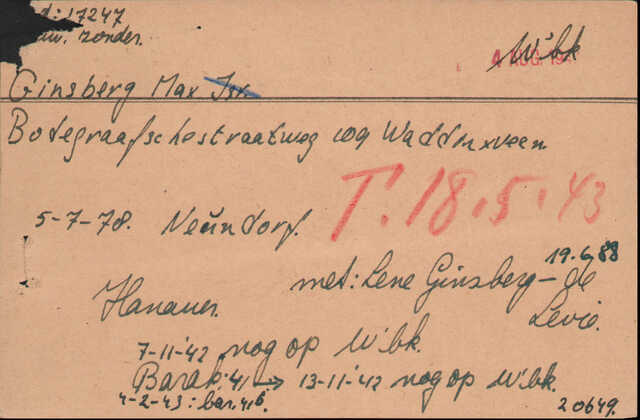 d: 17247
zonder.
W'bk
4 AUG. 19
Ginsberg Max Isr.
Bodegraafschestraatweg 109 Waddinxveen
T. 18.5.43
5-7-78. Neundorf.
19.6.88
met: Lene Ginsberg-de
Hanauer. Levie.
7-11-'42 nog op W'bk.
Barak: 41 → 13-11-'42 nog op W'bk.
4-2-43: bar. 41b.
20649.